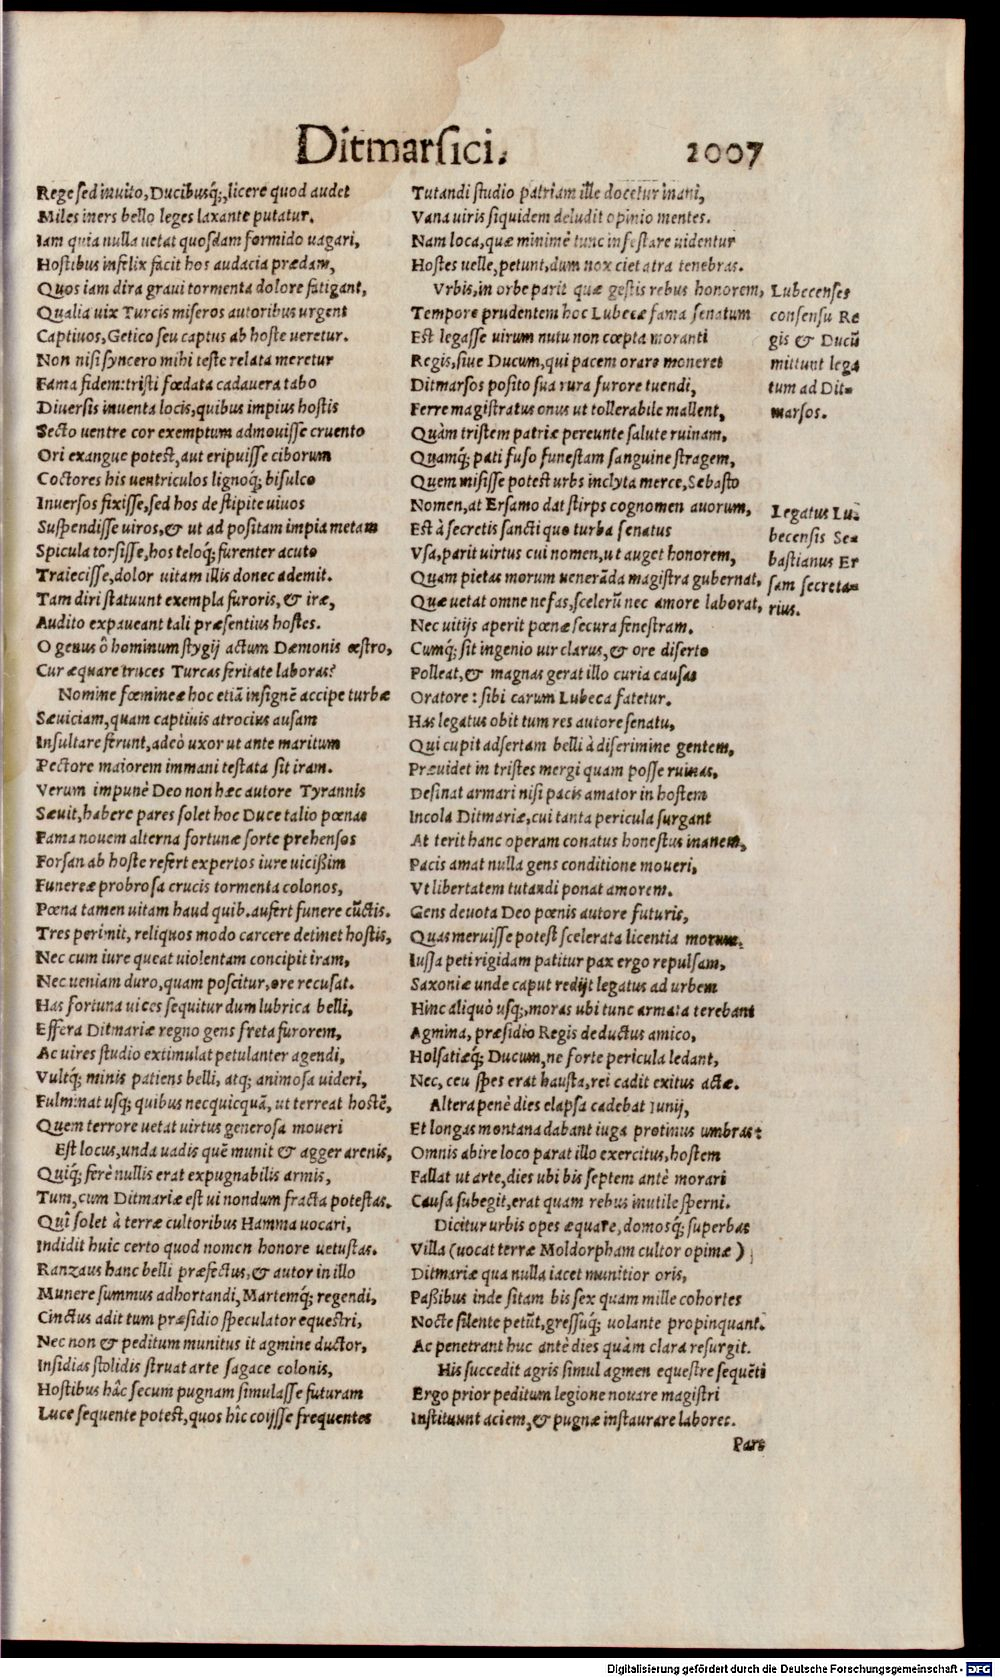 Ditmarsici.
2007
Rege sed inuito, Ducibusq́;, licere quod audet
Miles iners bello leges laxante putatur.
Iam quia nulla uetat quosdam formido uagari,
Hostibus infelix facit hos audacia prædam,
Quos iam dira graui tormenta dolore fatigant,
Qualia uix Turcis miseros autoribus urgent
Captiuos, Getico seu captus ab hoste ueretur.
Non nisi syncero mihi teste relata meretur
Fama fidem: tristi fœdata cadauera tabo
Diuersis inuenta locis, quibus impius hostis
Secto uentre cor exemptum admouisse cruento
Ori exangue potest, aut eripuisse ciborum
Coctores his uentriculos lignoq́; bisulco
Inuersos fixisse, sed hos de stipite uiuos
Suspendisse uiros, & ut ad positam impia metam
Spicula torsisse, hos teloq́; furenter acuto
Traiecisse, dolor uitam illis donec ademit.
Tam diri statuunt exempla furoris, & iræ,
Audito expaueant tali præsentius hostes.
O genus ô hominum stygij actum Dæmonis œstro,
Cur æquare truces Turcas feritate laboras?
Nomine fœmineæ hoc etiã insignē accipe turbæ
Sæuiciam, quam captiuis atrocius ausam
Insultare ferunt, adeò uxor ut ante maritum
Pectore maiorem immani testata sit iram.
Verum impunè Deo non hæc autore Tyrannis
Sæuit, habere pares solet hoc Duce talio pœnas
Fama nouem alterna fortunæ sorte prehensos
Forsan ab hoste refert expertos iure uicißim
Funereæ probrosa crucis tormenta colonos,
Pœna tamen uitam haud quib. aufert funere cũctis.
Tres perimit, reliquos modo carcere detinet hostis,
Nec cum iure queat uiolentam concipit iram,
Nec ueniam duro, quam poscitur, ore recusat.
Has fortuna uices sequitur dum lubrica belli,
Effera Ditmariæ regno gens freta furorem,
Ac uires studio extimulat petulanter agendi,
Vultq́; minis patiens belli, atq; animosa uideri,
Fulminat usq; quibus necquicquã, ut terreat hostē,
Quem terrore uetat uirtus generosa moueri
Est locus, unda uadis quē munit & agger arenis,
Quiq́; ferè nullis erat expugnabilis armis,
Tum, cum Ditmariæ est ui nondum fracta potestas.
Quî solet à terræ cultoribus Hamma uocari,
Indidit huic certo quod nomen honore uetustas.
Ranzaus hanc belli præfectus, & autor in illo
Munere summus adhortandi, Martemq́; regendi,
Cinctus adit tum præsidio speculator equestri,
Nec non & peditum munitus it agmine ductor,
Insidias stolidis struat arte sagace colonis,
Hostibus hâc secum pugnam simulasse futuram
Luce sequente potest, quos hîc coijsse frequentes
Tutandi studio patriam ille docetur inani,
Vana uiris siquidem deludit opinio mentes.
Nam loca, quæ minimè tunc infestare uidentur
Hostes uelle, petunt, dum nox ciet atra tenebras.
Vrbis, in orbe parit quæ gestis rebus honorem,
Tempore prudentem hoc Lubecæ fama senatum
Est legasse uirum nutu non cœpta moranti
Regis, siue Ducum, qui pacem orare moneret
Ditmarsos posito sua rura furore tuendi,
Ferre magistratus onus ut tollerabile mallent,
Quàm tristem patriæ pereunte salute ruinam,
Quamq́; pati fuso funestam sanguine stragem,
Quem misisse potest urbs inclyta merce, Sebasto
Nomen, at Ersamo dat stirps cognomen auorum,
Est à secretis sancti quo turba senatus
Vsa, parit uirtus cui nomen, ut auget honorem,
Quam pietas morum uenerãda magistra gubernat,
Quæ uetat omne nefas, scelerũ nec amore laborat,
Nec uitijs aperit pœnæ secura fenestram.
Cumq́; sit ingenio uir clarus, & ore diserto
Polleat, & magnas gerat illo curia causas
Oratore: sibi carum Lubeca fatetur.
Has legatus obit tum res autore senatu,
Qui cupit adsertam belli à discrimine gentem,
Præuidet in tristes mergi quam posse ruinas,
Desinat armari nisi pacis amator in hostem
Incola Ditmariæ, cui tanta pericula surgant
At terit hanc operam conatus honestus inanem,
Pacis amat nulla gens conditione moueri,
Vt libertatem tutandi ponat amorem.
Gens deuota Deo pœnis autore futuris,
Quas meruisse potest scelerata licentia morum.
Iussa peti rigidam patitur pax ergo repulsam,
Saxoniæ unde caput redijt legatus ad urbem
Hinc aliquò usq;, moras ubi tunc armata terebant
Agmina, præsidio Regis deductus amico,
Holsatiæq́; Ducum, ne forte pericula ledant,
Nec, ceu spes erat hausta, rei cadit exitus actæ.
Altera penè dies elapsa cadebat Iunij,
Et longas montana dabant iuga protinus umbras:
Omnis abire loco parat illo exercitus, hostem
Fallat ut arte, dies ubi bis septem antè morari
Causa subegit, erat quam rebus inutile sperni.
Dicitur urbis opes æquare, domosq́; superbas
Villa (uocat terræ Moldorpham cultor opimæ)
Ditmariæ qua nulla iacet munitior oris,
Paßibus inde sitam bis sex quam mille cohortes
Nocte silente petũt, gressuq́; uolante propinquant.
Ac penetrant huc antè dies quàm clara resurgit.
His succedit agris simul agmen equestre sequēti
Ergo prior peditum legione nouare magistri
Instituunt aciem, & pugnæ instaurare labores.
Pars
Lubecenses
consensu Re
gis & Ducũ
mittunt lega
tum ad Dit-
marsos.
Legatus Lu-
becensis Se-
bastianus Er
sam secreta-
rius.
Digitalisierung gefördert durch die Deutsche Forschungsgemeinschaft - DFG